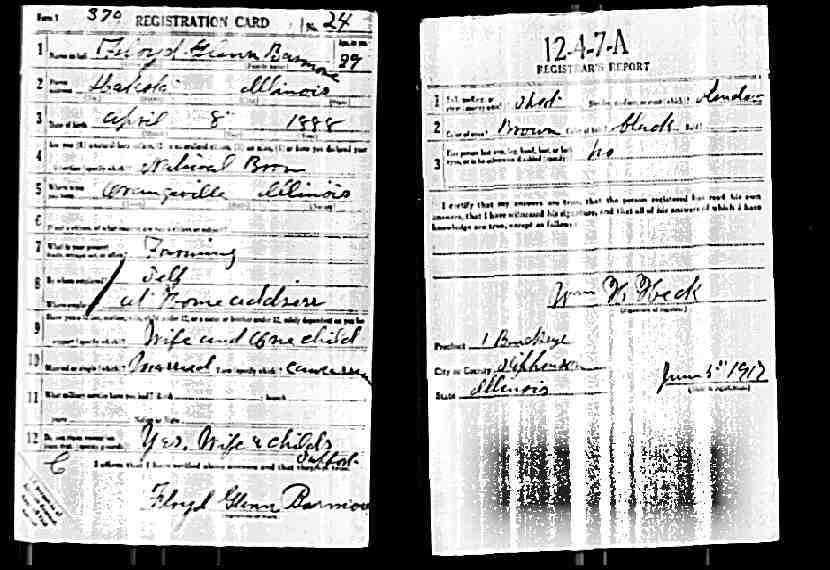 Form 1 370 REGISTRATION CARD No. 24
1 Name in full Floyd Glenn Barmore Age, in yrs. 29
2 Home address Dakota Illinois
3 Date of birth April 8 1888
4 Natural Born
5 Where were you born? Orangeville Illinois
6
7 What is your present trade, occupation, or office? Farming
8 By whom employed? Self
Where employed? at Home address
9 Wife and One child
10 Married or single (which)? Married Race (specify which)? Caucasian
11 What military service have you had? Rank branch
years Nation or State
12 Do you claim exemption from draft (specify grounds)? Yes. Wife & childs
Support
I affirm that I have verified above answers and that they are true.
Floyd Glenn Barmore
12-4-7-A
REGISTRAR'S REPORT
1 Tall, medium, or short (specify which)? Short Slender, medium, or stout (which)? Slender
2 Color of eyes? Brown Color of hair? black Bald?
3 Has person lost arm, leg, hand, foot, or both eyes, or is he otherwise disabled (specify)? no
I certify that my answers are true, that the person registered has read his own
answers, that I have witnessed his signature, and that all of his answers of which I have
knowledge are true, except as follows:
(Signature of registrar)
Precinct 1 Buckeye
City or County Stephenson
State Illinois June 5" 1917
(Date of registration)